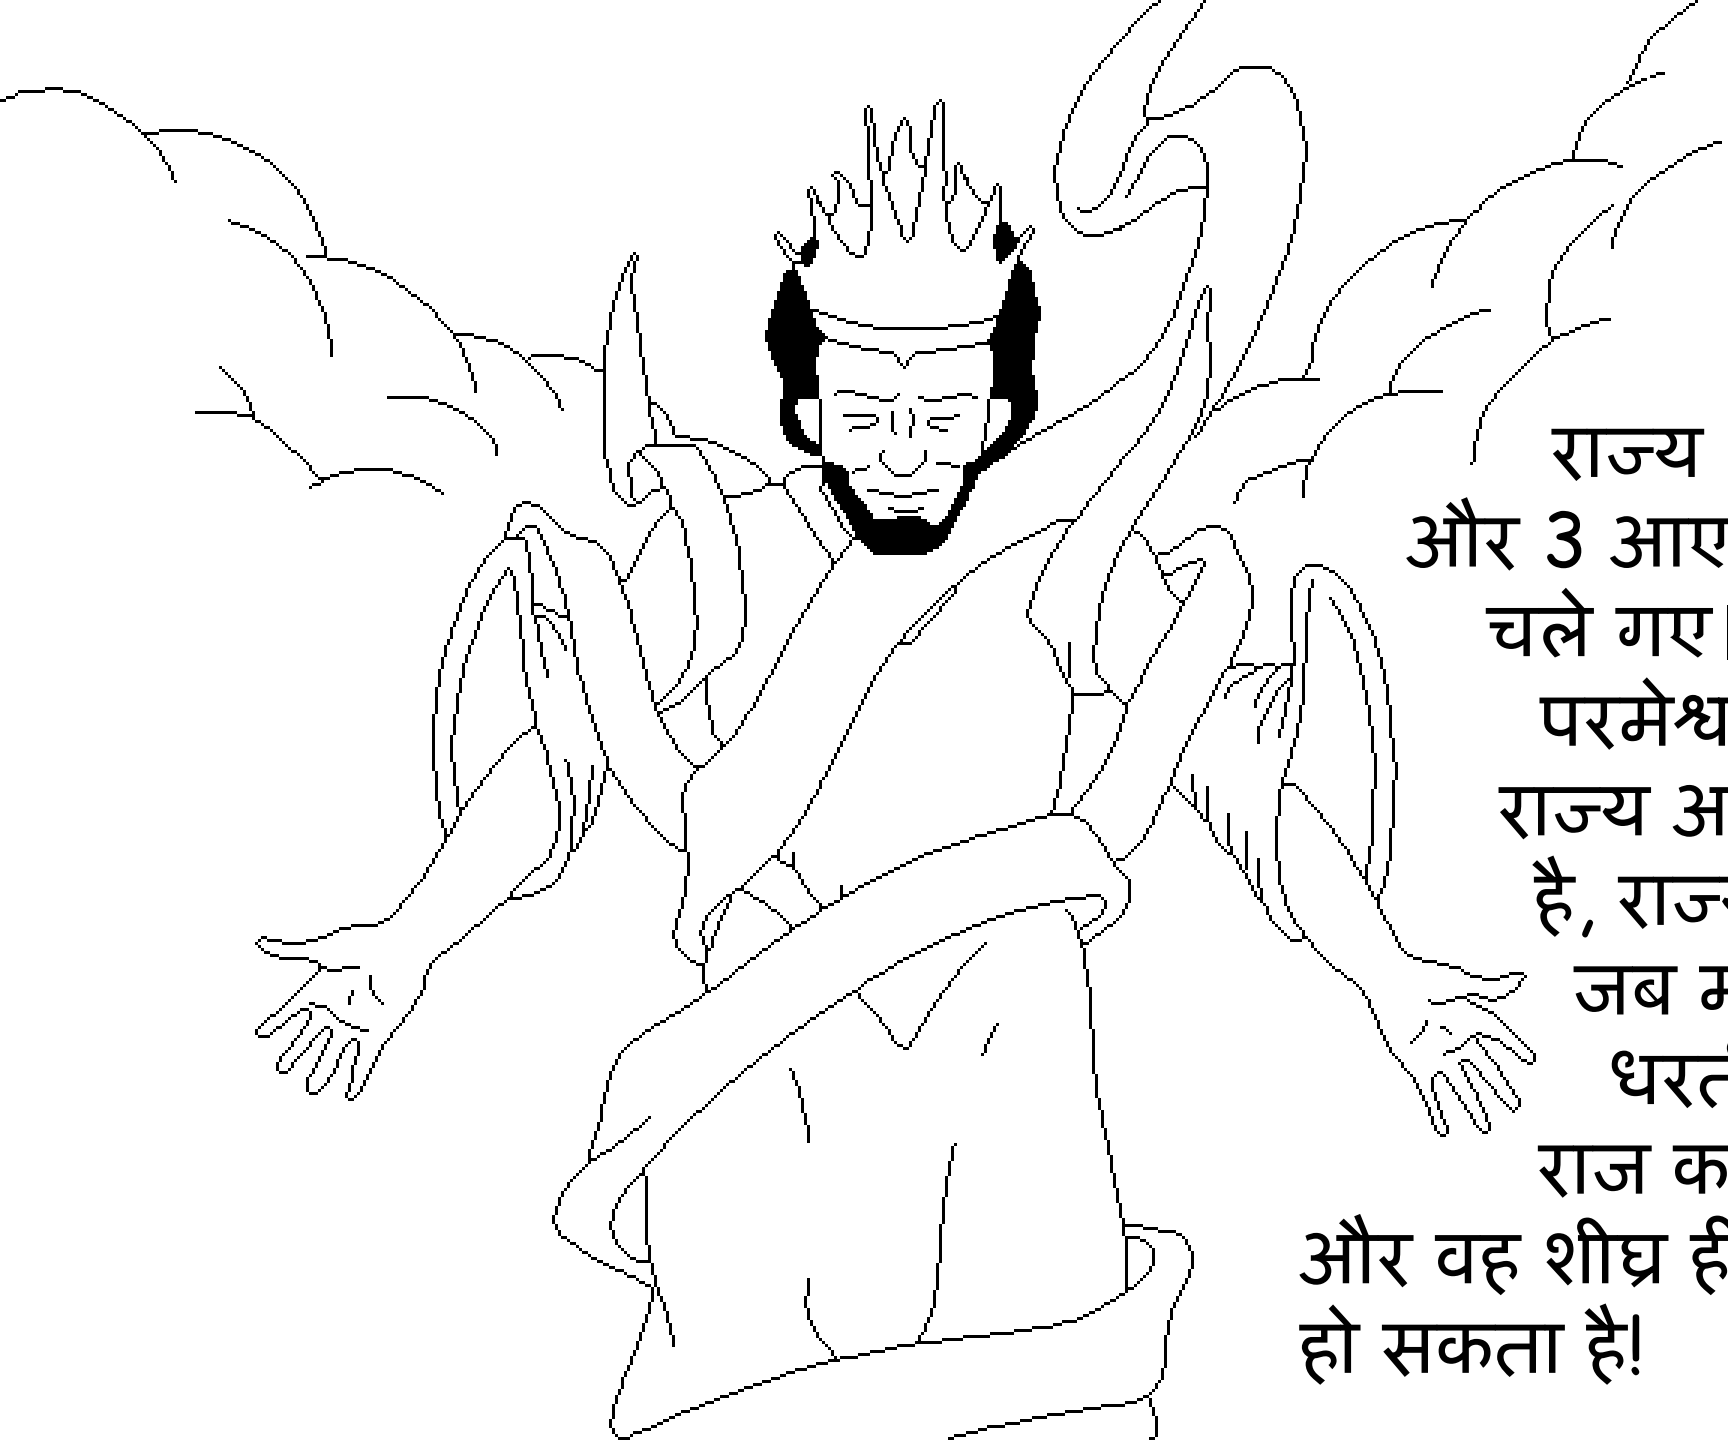 राज्य
और 3 आए
चले गए।
परमेश्व
राज्य अ
है, राज्
जब म
धरत
राज क
और वह शीघ्र ही
हो सकता है!